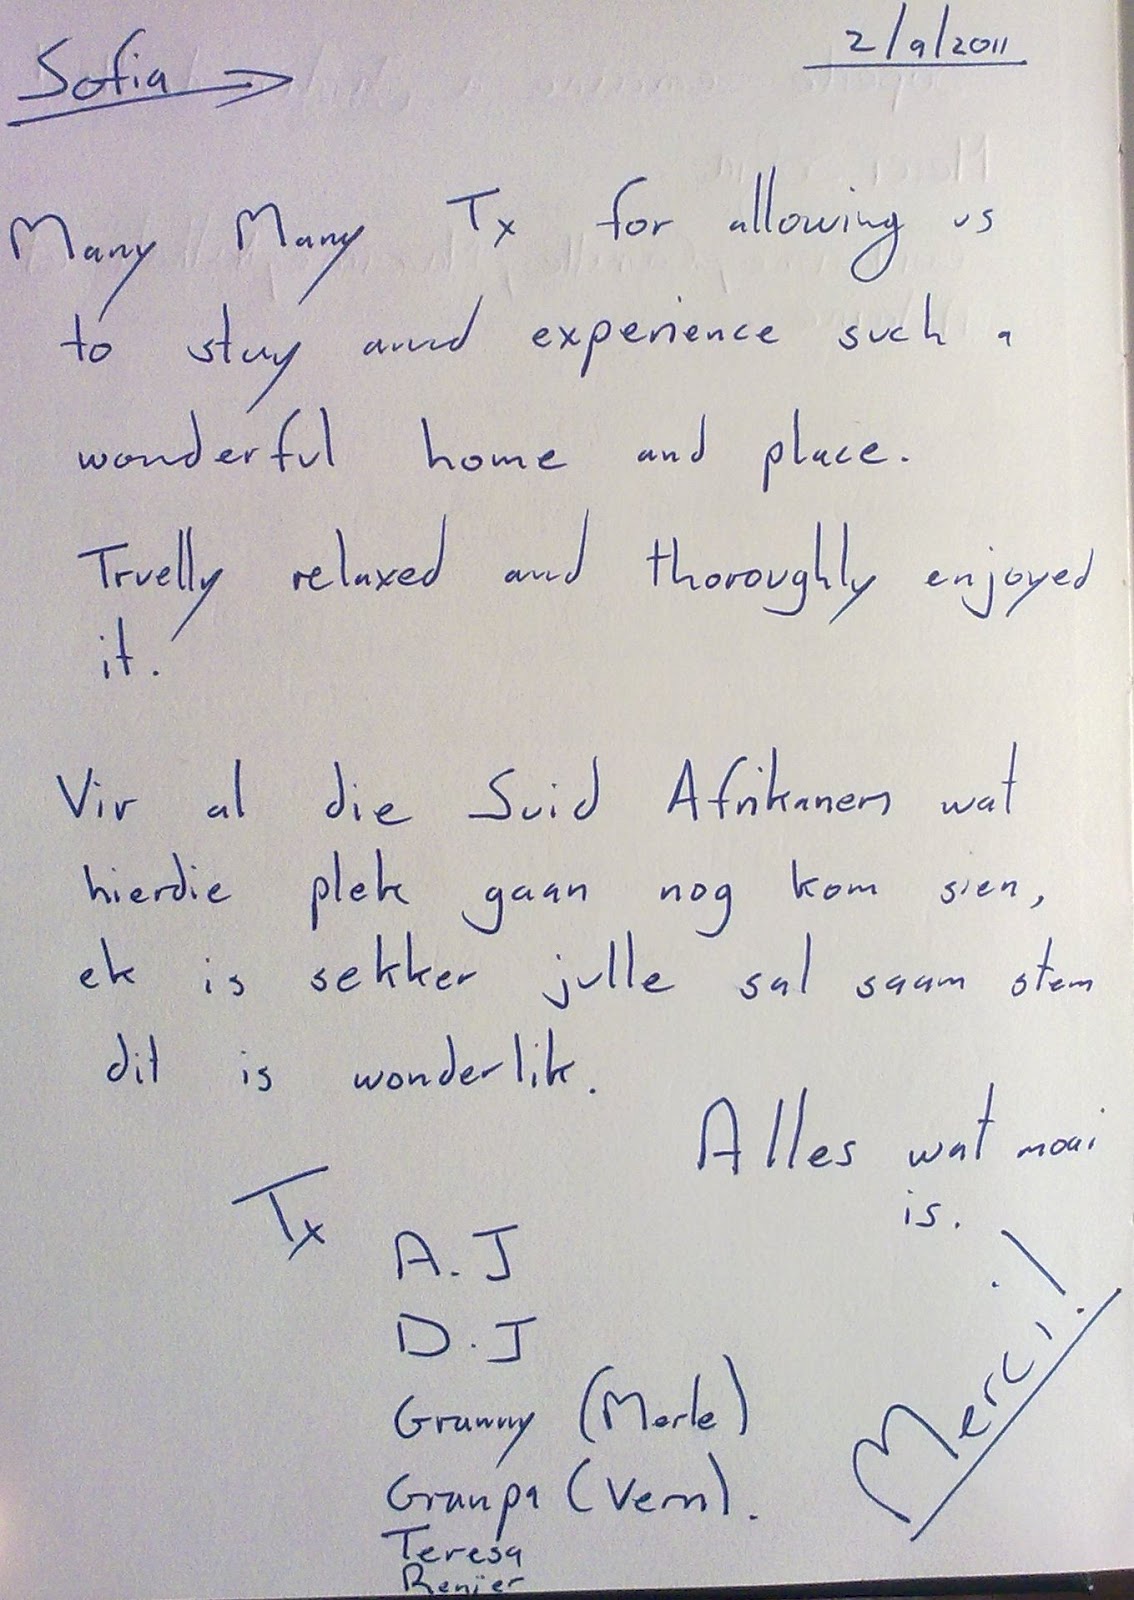 Sofia →
2/9/2011
Many Many Tx for allowing us
to stay annd experience such a
wonderful home and place.
Truelly relaxed and thoroughly enjoyed
it.
Vir al die Suid Afrikaners wat
hierdie plek gaan nog kom sien,
ek is sekker julle sal saam stem
dit is wonderlik.
Alles wat mooi
is.
Tx
A.J
D.J
Granny (Merle)
Granpa (Vern).
Teresa
Renier
Merci!